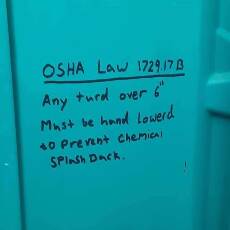 OSHA Law 1729.17B
Any turd over 6"
Must be hand Lowerd
to Prevent Chemical
Splash Back.